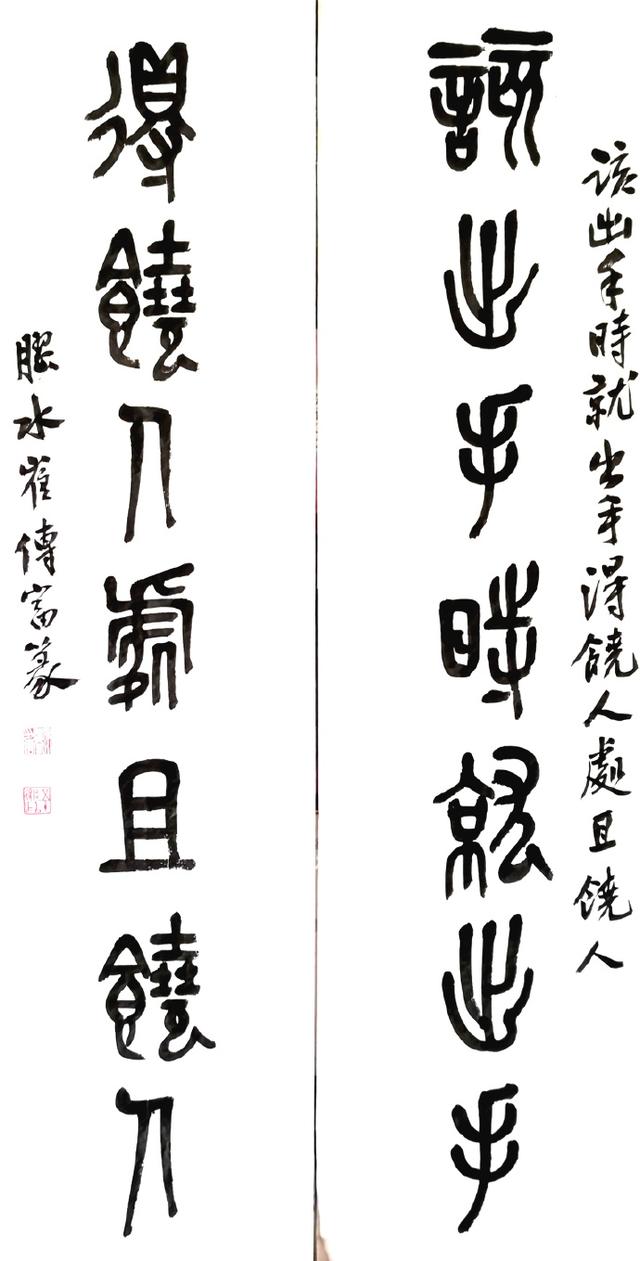 該出手時就出手得饒人處且饒人
該出手時就出手
得饒人處且饒人
膠水崔傳富篆